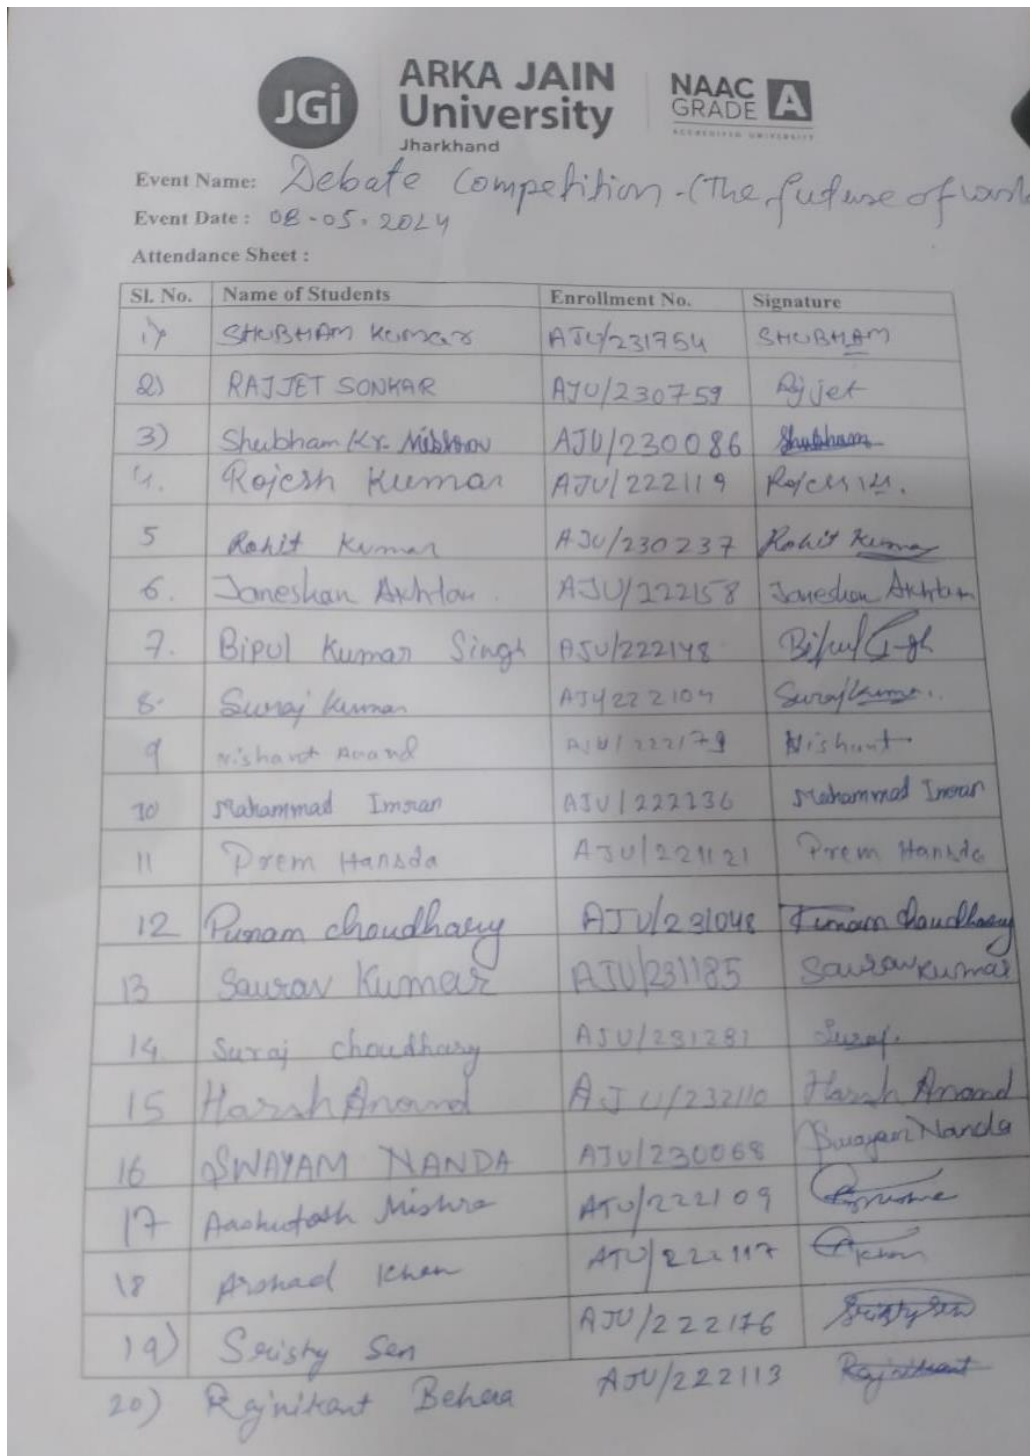 JGi
ARKA JAIN
University
Jharkhand
NAAC
GRADE A
ACCREDITED UNIVERSITY
Event Name: Debate Competition - (The future of
Event Date : 08-05-2024
Attendance Sheet :
Sl. No. Name of Students Enrollment No. Signature
1) SHUBHAM Kumar AJU/231754 SHUBHAM
2) RAJJET SONKAR AJU/230759 Rajjet
3) Shubham Kr. AJU/230086 Shubham
4. Rajesh Kumar AJU/222119
5 Rohit Kumar AJU/230237 Rohit Kumar
6. Janeshan Akhtar AJU/222158 Janeshan Akhtar
7. Bipul Kumar Singh AJU/222148 Bipul Singh
8. Suraj Kumar Suraj Kumar
9 Nishant Anand AJU/222179 Nishant
10 Mahammad Imran AJU/222236 Mahammad Imran
11 Prem Hansda AJU/221121 Prem Hansda
12 Punam choudhary AJU/231048 Punam choudhary
13 Saurav Kumar AJU/231185 Saurav Kumar
14 Suraj choudhary AJU/231281 Suraj
15 Harsh Anand AJU/232110 Harsh Anand
16 SWAYAM NANDA AJU/230068 Swayam Nanda
17 Aashutosh Mishra AJU/222109
18 Arshad Khan AJU/222117 Khan
19) Sristy Sen AJU/222176 Sristy Sen
20) Rajnikant Behera AJU/222113 Rajnikant